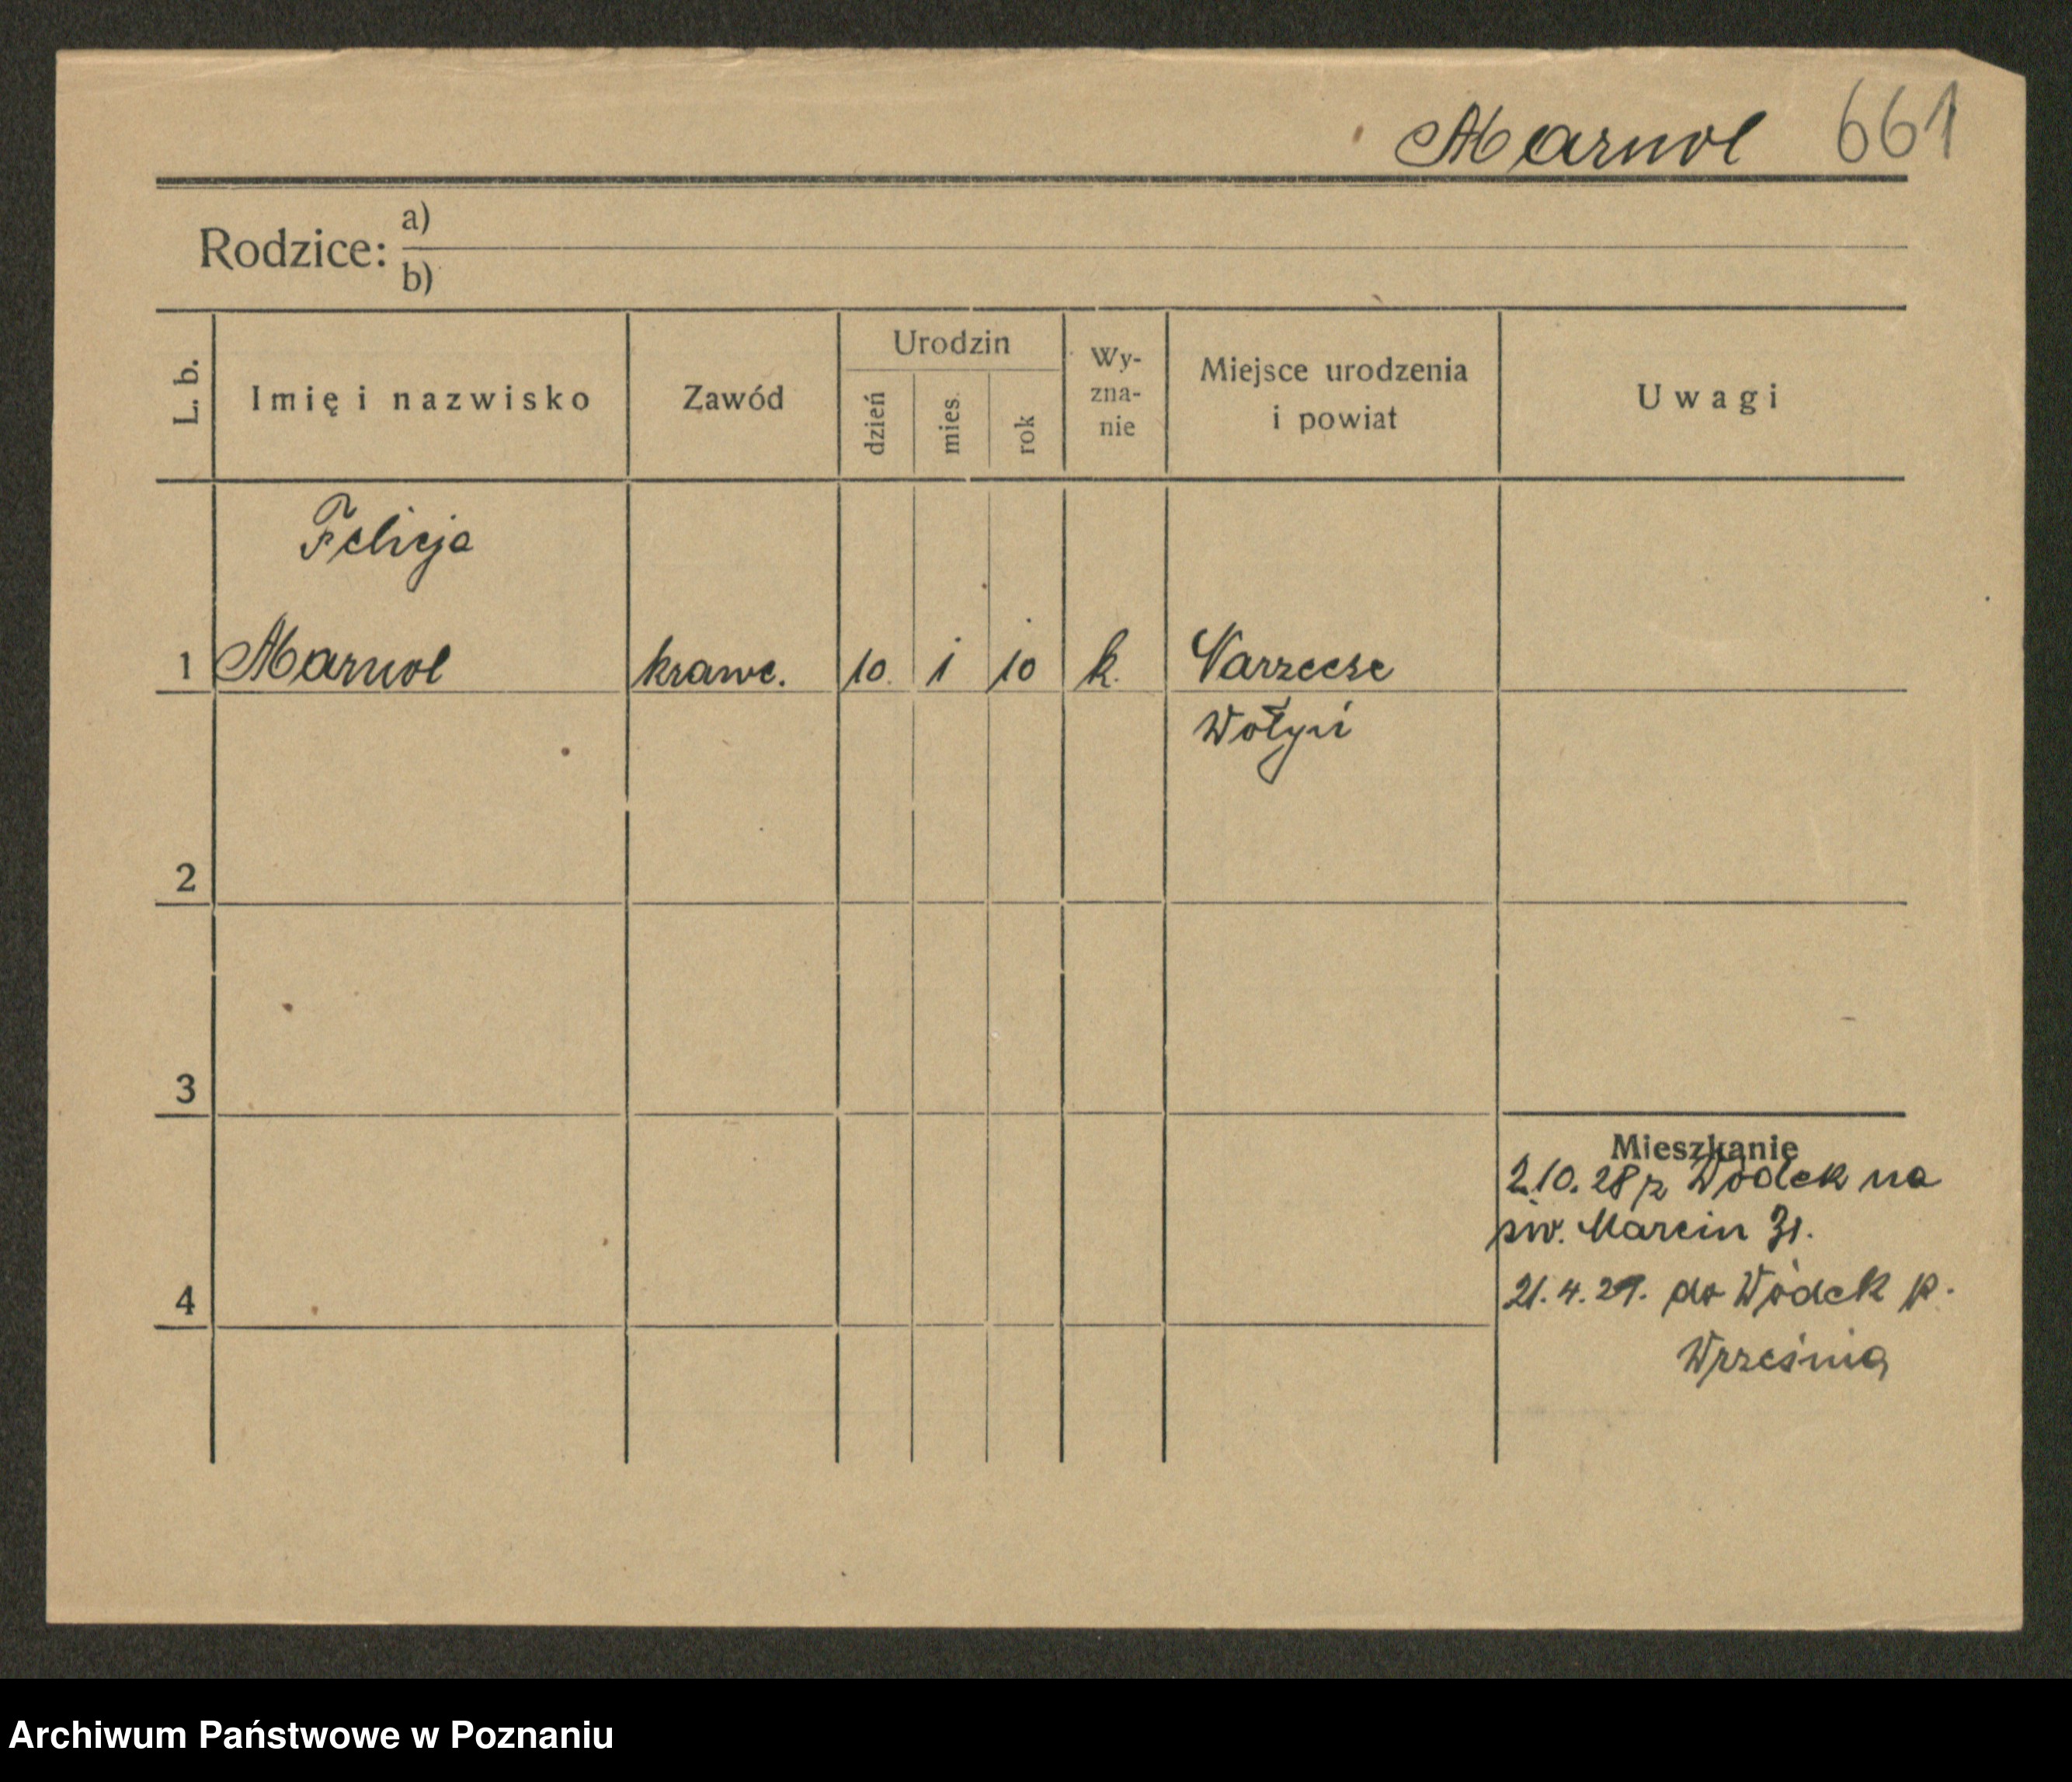 Marwol 661
Rodzice: a)
b)
L. b. Imię i nazwisko Zawód Urodzin dzień mies. rok Wy-zna-nie Miejsce urodzenia i powiat Uwagi
Felicja
1 Marwol krawc. 10 1 10 k. Narzecze
Wołyń
2
3
Mieszkanie
2.10.28 z Wódek na
św. Marcin 31.
4 21.4.29. do Wódek p.
Września
Archiwum Państwowe w Poznaniu